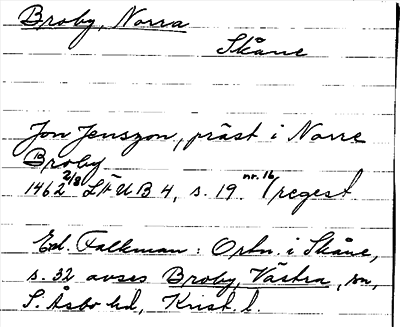 Broby, Norra
Skåne
Jon Jenszon, präst i Norre
Broby
1462 2/8 LÄUB 4, s. 19 nr. 16 /regest
Ed. Falkman: Ortn. i Skåne,
s. 32 avses Broby, Västra, sn,
S. Åsbo hd, Krist. l.